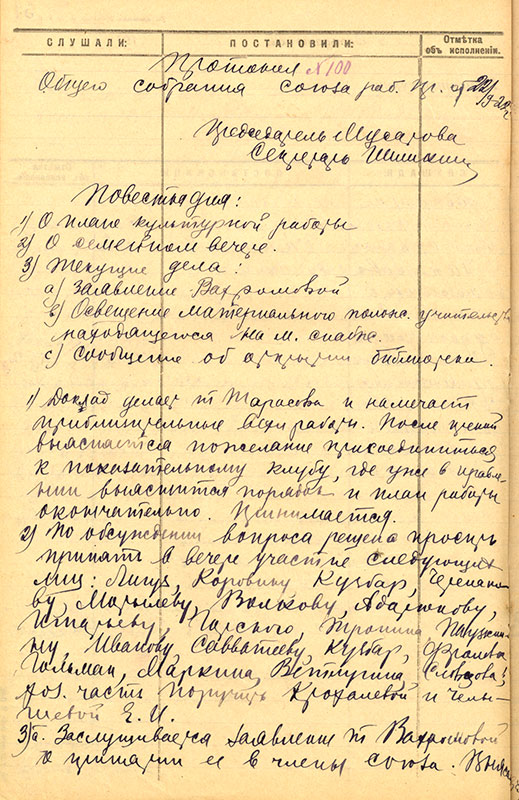 СЛУШАЛИ: ПОСТАНОВИЛИ: Отмѣтка объ исполненіи.
Протокол №100
Общего собрания союза раб. пр. от 22/
Председатель Мусатова
Секретарь
Повестка дня:
1) О плане культурной работы
2) О семейном вечере.
3) Текущие дела:
а) Заявление Вахромовой
в) Освещение материального полож. учительства
находящегося на м. снабж.
с) Сообщение об открытии библиотеки.
1) Доклад делает т Тарасова и намечает
приблизительные работы. После прений
выясняется пожелание присоединиться
к показательному клубу, где уже в правле-
нии выяснится порядок и план работы
окончательно. Принимается.
2) По обсуждении вопроса решено просить
принять в вечере участие следующих
лиц: Коровину Кузвар, Черепано-
ву, Волкову,
Тропина
ну, Иванову Савватееву, Кузвар,
Гольман, Маркина, Слевцова;
хоз. часть поручить и Челы-
шевой Е. И.
3) а. Заслушивается заявление т Вахромовой
о принятии ее в члены союза.